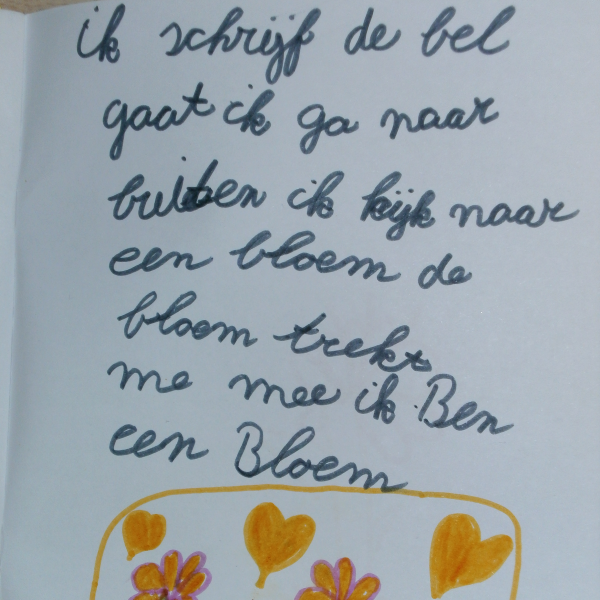 ik schrijf de bel
gaat ik ga naar
buiten ik kijk naar
een bloem de
bloem trekt
me mee ik Ben
een Bloem